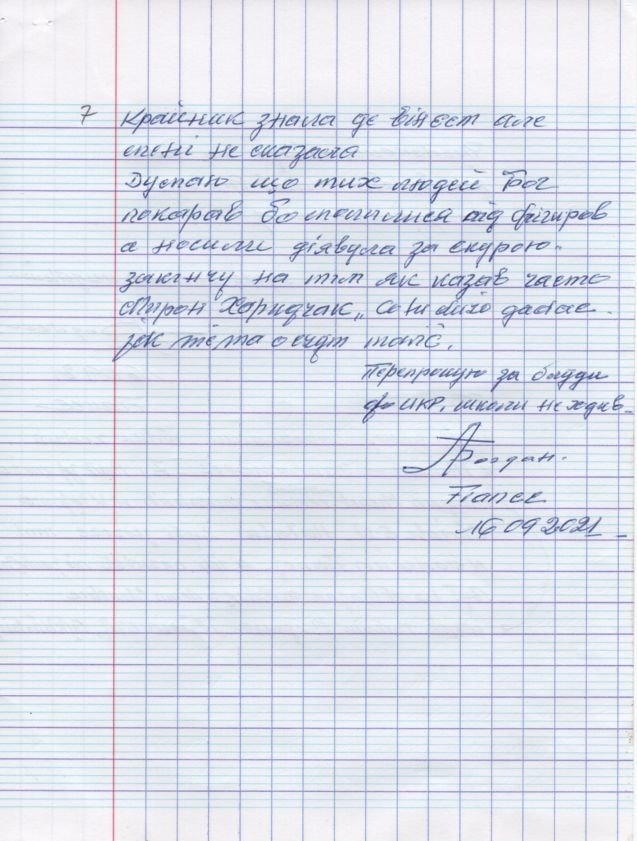 7 Крайник знала де він єст але
мені не сказала
Думаю що тих людей Бог
покарав бо молилися від фігиров
а носили діявула за скурою.
закінчу на тім як казав часто
Мирон Харидчак „
як тема о суді.
Перепрошую за блуди
до УКР. школи не ходив.
Богдан.
16 09 2021